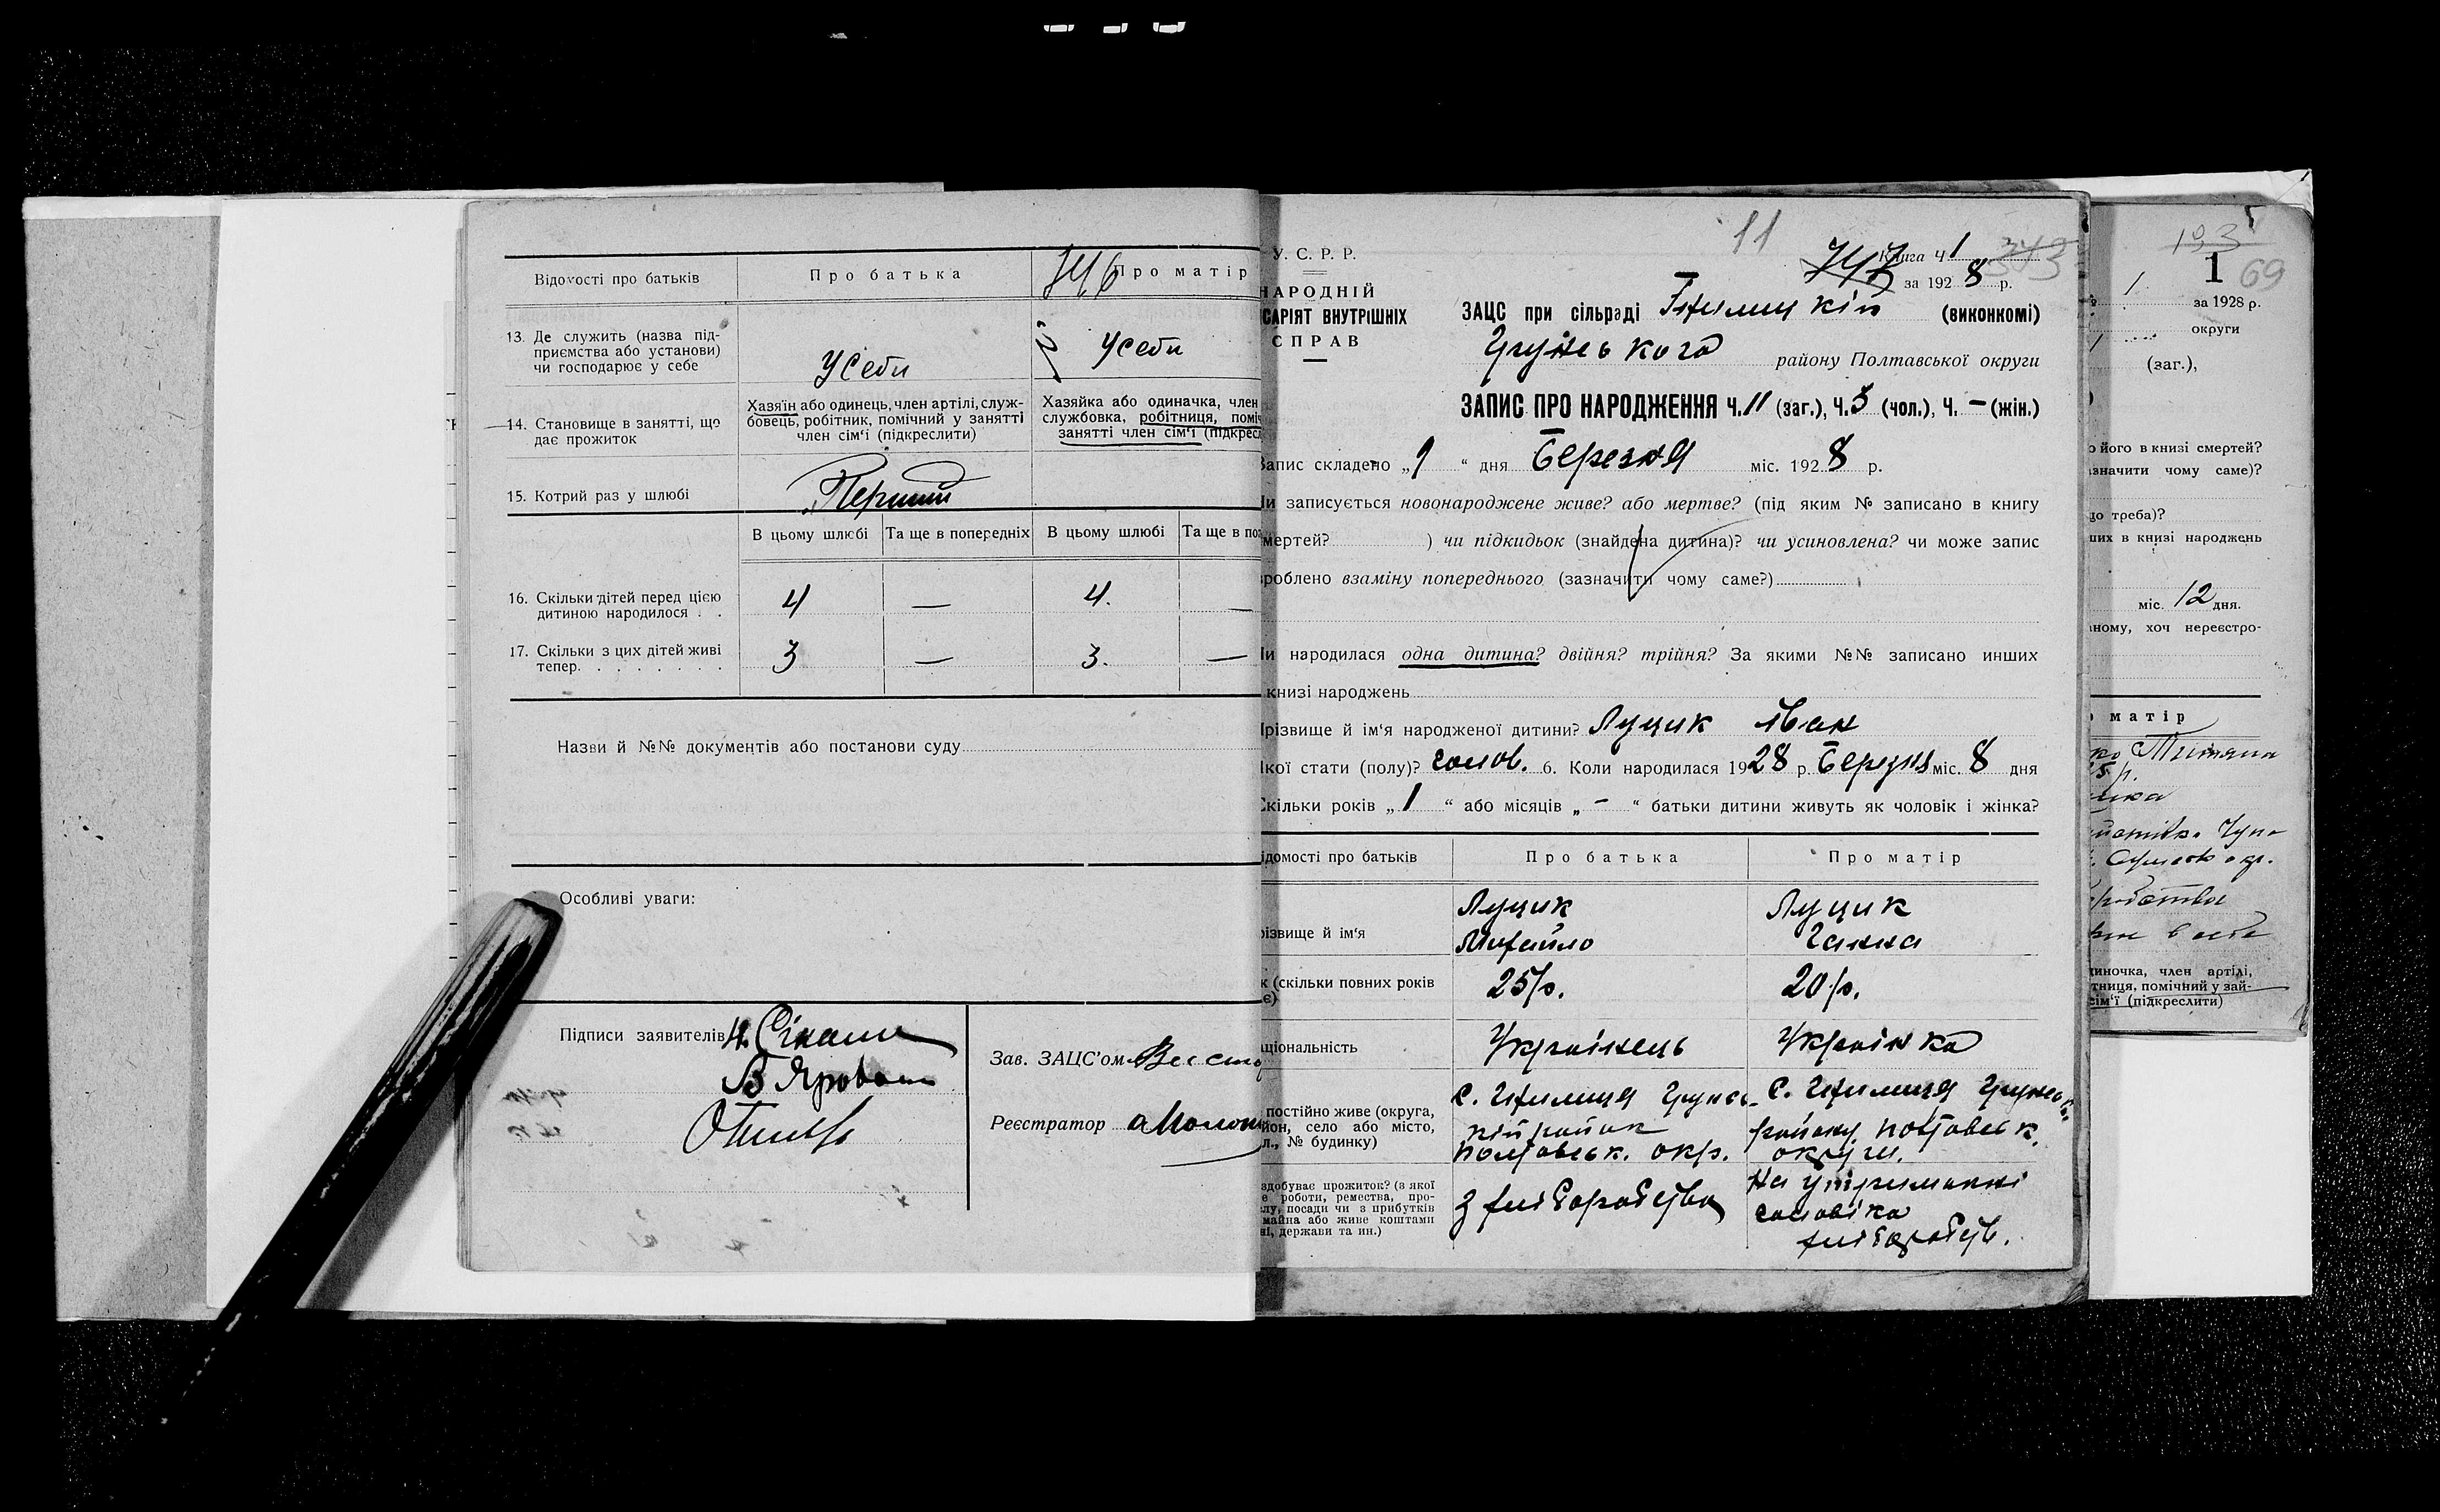 Відомості про батьків
Про батька
746
Про матір
13. Де служить (назва під-
приємства або установи)
чи господарює у себе
Усеби
Усеби
14. Становище в занятті, що
дає прожиток
Хазяїн або одинець, член артілі, служ-
бовець, робітник, помічний у занятті
член сім'ї (підкреслити)
Хазяйка або одиначка, член
службовка, робітниця, поміч
занятті член сім'ї (підкресл
15. Котрий раз у шлюбі
Перший
В цьому шлюбі
Та ще в попередніх
В цьому шлюбі
Та ще в поп
16. Скільки дітей перед цією
дитиною народилося . .
4 — 4. —
17. Скільки з цих дітей живі
тепер. . . . . . . .
3 — 3. —
Назви й №№ документів або постанови суду
Особливі уваги:
Підписи заявителів
В Яровой
Зав. ЗАЦС'ом
Реєстратор
11
У. С. Р. Р.
НАРОДНІЙ
САРІЯТ ВНУТРІШНІХ
СПРАВ
Книга Ч 1
747
343
за 1928 р.
ЗАЦС при сільраді (виконкомі)
Грунського району Полтавської округи
ЗАПИС ПРО НАРОДЖЕННЯ Ч. 11 (заг.), Ч. 5 (чол.), Ч. – (жін.)
Запис складено „9 “ дня Березня міс. 1928 р.
Чи записується новонароджене живе? або мертве? (під яким № записано в книгу
мертей? ) чи підкидьок (знайдена дитина)? чи усиновлена? чи може запис
роблено взаміну попереднього (зазначити чому саме?)
Чи народилася одна дитина? двійня? трійня? За якими №№ записано инших
книзі народжень
Прізвище й ім'я народженої дитини? Луцик Іван
Якої стати (полу)? чолов. 6. Коли народилася 1928 р. Березня міс. 8 дня
Скільки років „ 1 “ або місяців „ – “ батьки дитини живуть як чоловік і жінка?
ідомості про батьків
Про батька
Про матір
різвище й ім'я
Луцик
Михайло
Луцик
Ганна
к (скільки повних років
є)
25 р.
20 р.
аціональність
Українець
Українка
постійно живе (округа,
йон, село або місто,
л., № будинку)
кій район
Полтавськ. окр.
району Полтавськ.
округи.
здобуває прожиток? (з якої
е роботи, ремества, про-
лу, посади чи з прибутків
майна або живе коштами
ні, держави та ин.)
З хліборобства
На утриманні
чоловіка
хлібороб.
193
1
69
1.
за 1928 р.
округи
(заг.),
о його в книзі смертей?
значити чому саме)?
що треба)?
ших в книзі народжень
міс. 12 дня.
ному, хоч нереєстро-
матір
ко Титяна
5 р.
диночка, член артілі,
тниця, помічний у зай-
сім'ї (підкреслити)